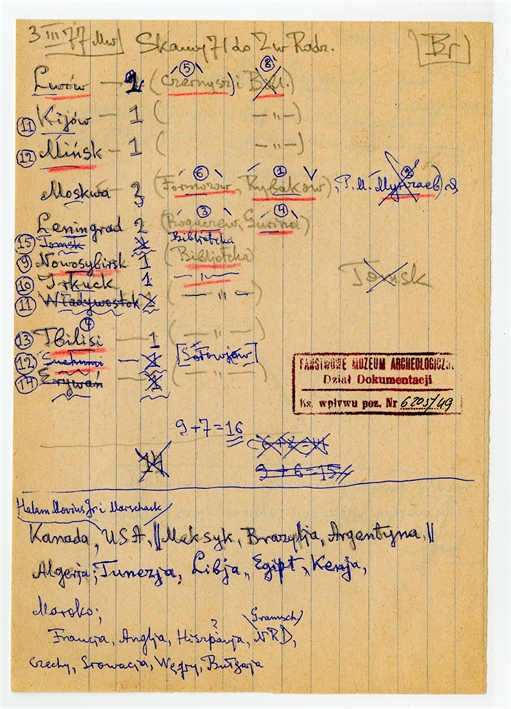 3 III 77 Skamy 71 do Zw Radz. Br
Lwów — 2 (5 Czernysz) i 8 B.U.)
11 Kijów — 1 ( — " — )
12 Mińsk — 1 ( — " — )
Moskwa 3 (6 Formozow, 1 Rybaków), 2
Leningrad 2 (3 Rogaczew, 4 Gurina)
15 Tomsk Biblioteka
9 Nowosybirsk 1 (Biblioteka)
Tomsk
10 Irkuck 1 — " —
11 Władywostok ( — " — )
4
13 Tbilisi — 1 ( — " — )
12 Suchumi — [Sołowjow]
14 Erywań — ( — " — )
PAŃSTWOWE MUZEUM ARCHEOLOGICZ.
Dział Dokumentacji
Ks. wpływu poz. Nr 6205/49
9+7=16
14
9+6=15
Hallam Movius Jr i Marschack
Kanada, USA, || Meksyk, Brazylia, Argentyna ||
Algeria; Tunezja, Libja, Egipt, Kenja,
Maroko;
? Gramsch
Francja, Anglia, Hiszpanja, NRD,
Czechy, Słowacja, Węgry, Bułgaja